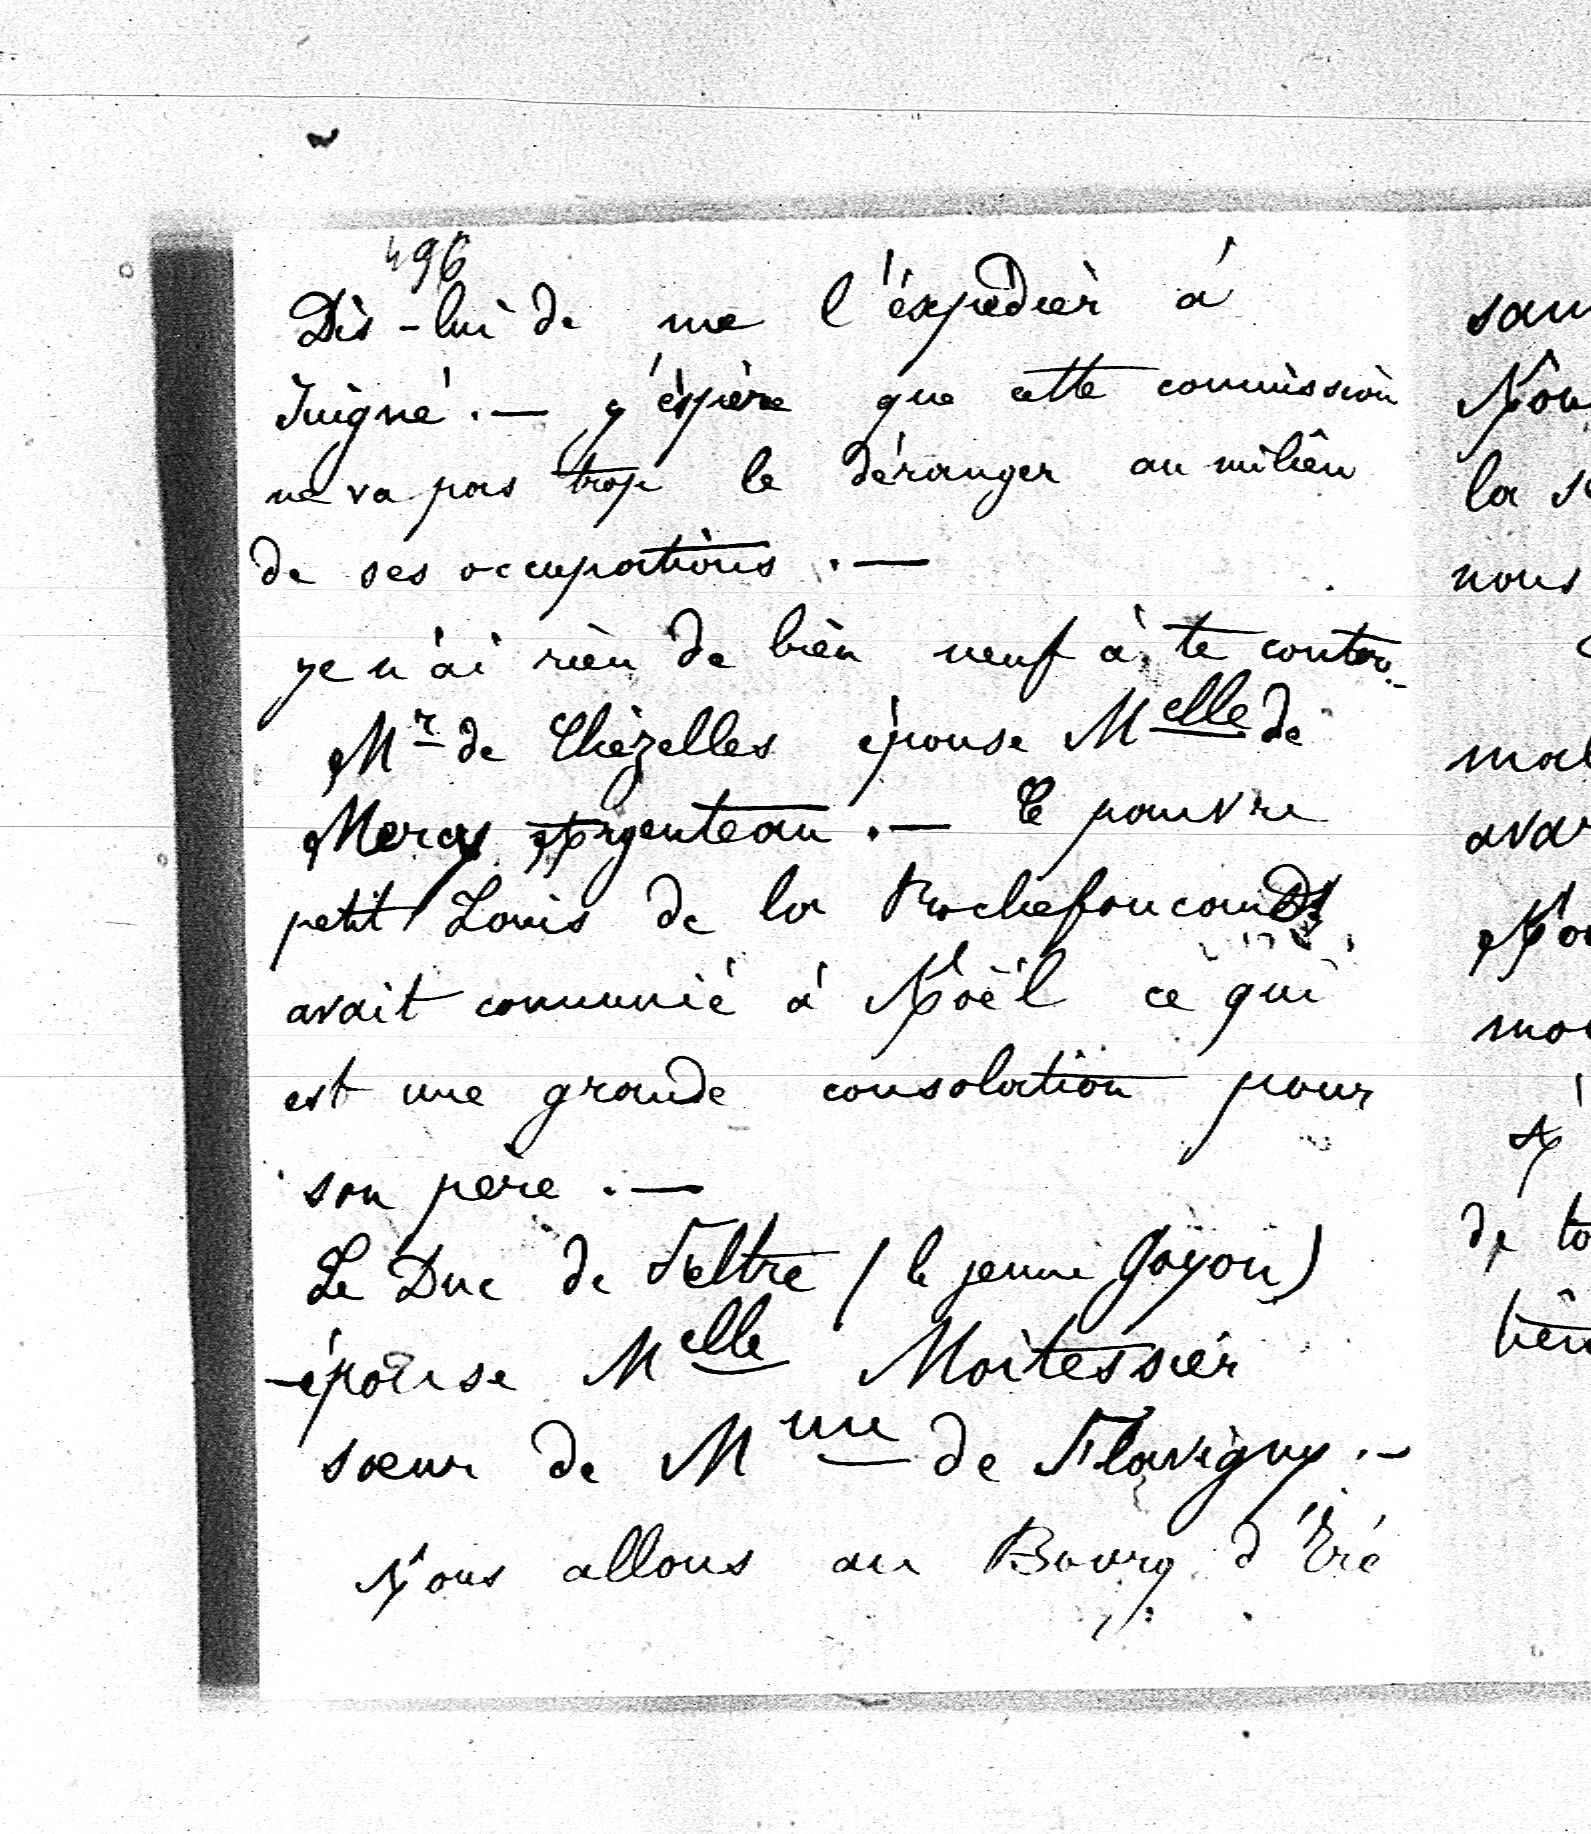 496
Dis-lui de me l'éxpédier à
Juigné. — J'éspère que cette commission
ne va pas trop le déranger au milieu
de ses occupations. —
Je n'ai rien de bien neuf à te conter. -
Mr de Chézelles épouse Melle de
Mercy Argenteau. — Ce pauvre
petit Louis de la Rochefoucauld
avait communié à Noël ce qui
est une grande consolation pour
son père. —
Le Duc de Feltre (le jeune Goyon)
épouse Melle Moitessier
sœur de Mme de Flavigny. -
Nous allons au Bourg d'Iré
sou
la se
nous
mal
avar
mon
de to